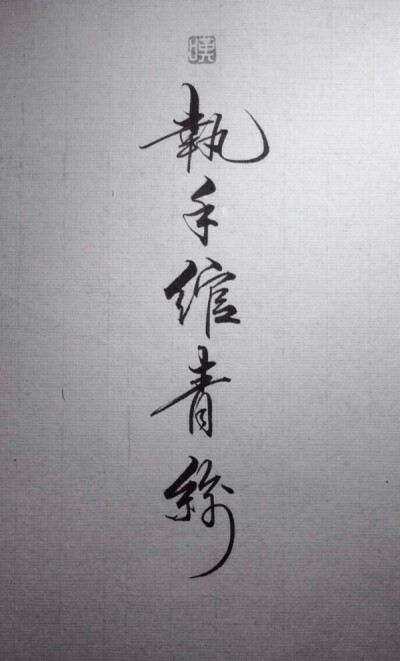 執手綰青絲